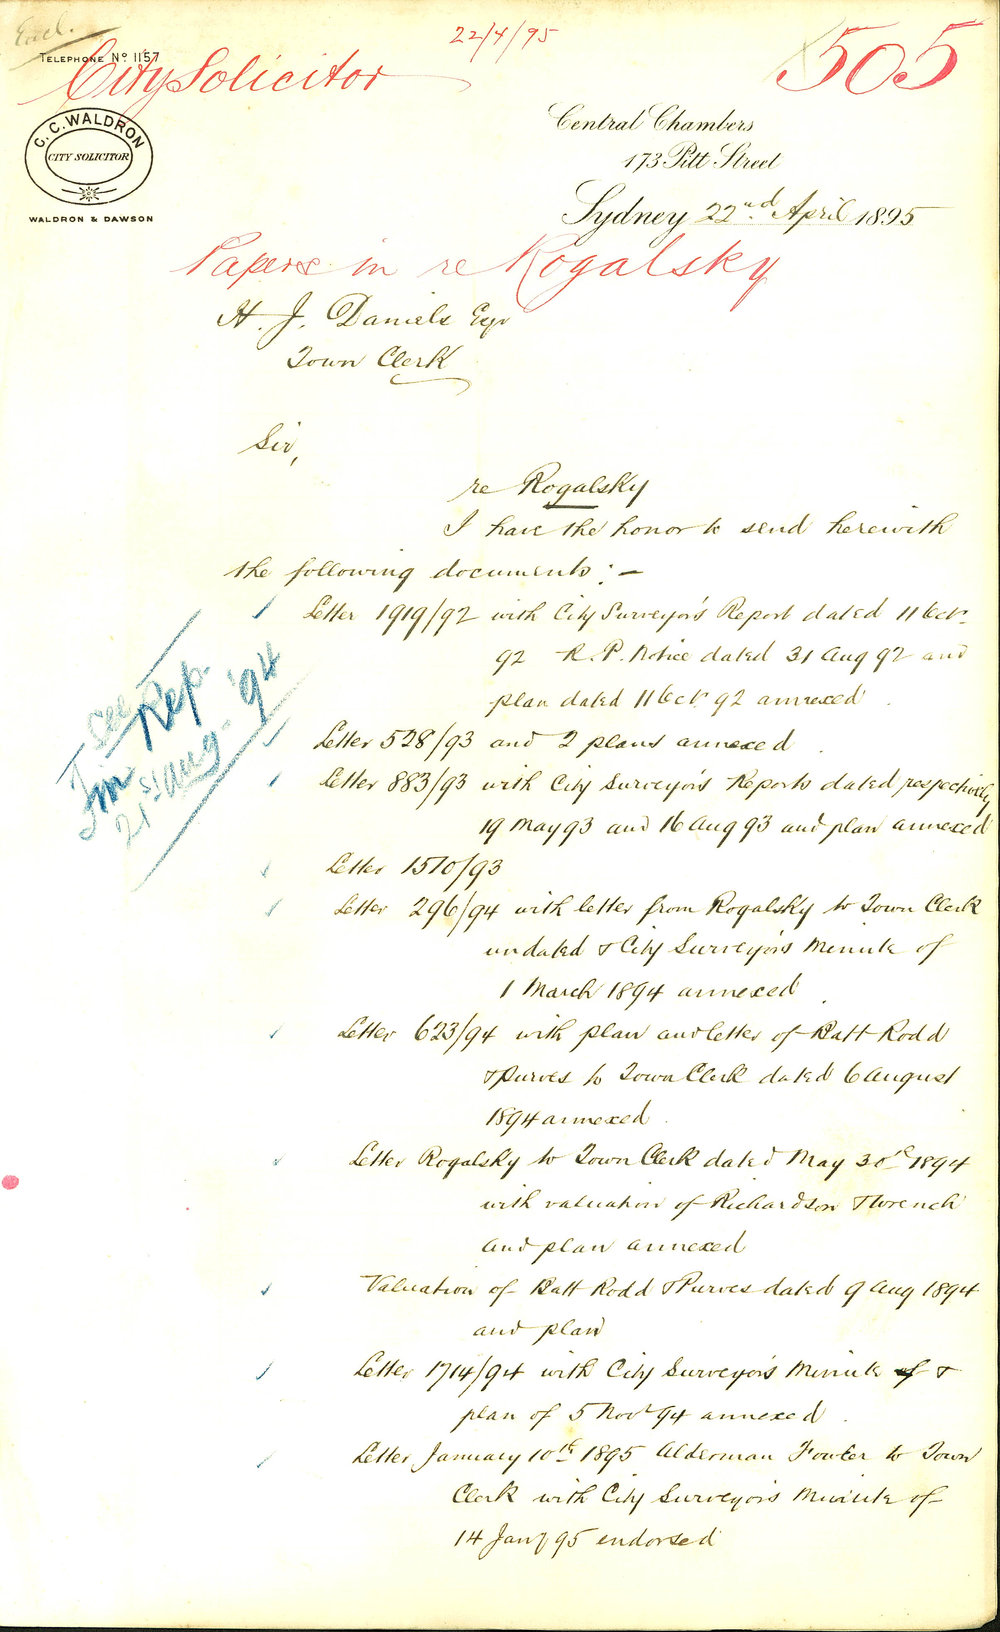 Encl.
22/4/95
505
TELEPHONE Nº 1157
City Solicitor
G. C. WALDRON
CITY SOLICITOR
WALDRON & DAWSON
Central Chambers
173 Pitt Street
Sydney 22nd April 1895
Papers in re Rogalsky
H. J. Daniels Esqr
Town Clerk
Sir,
re Rogalsky
I have the honor to send herewith
the following documents :-
Letter 1919/92 with City Surveyor's Report dated 11 Octr
92 R. P. Notice dated 31 Aug 92 and
plan dated 11 Octr 92 annexed.
See Rep.
Fin
21st Aug. '94
Letter 528/93 and 2 plans annexed.
Letter 883/93 with City Surveyor's Reports dated respectively
19 May 93 and 16 Aug 93 and plan annexed
Letter 1510/93
Letter 296/94 with letter from Rogalsky to Town Clerk
undated & City Surveyor's Minute of
1 March 1894 annexed.
Letter 623/94 with plan and letter of Batt Rodd
& Purves to Town Clerk dated 6 August
1894 annexed.
Letter Rogalsky to Town Clerk dated May 30th 1894
with valuation of Richardson & Wrench
and plan annexed
Valuation of Batt Rodd & Purves dated 9 Aug 1894
and plan
Letter 1714/94 with City Surveyor's Minute of &
plan of 5 Novr 94 annexed.
Letter January 10th 1895 Alderman Fowler to Town
Clerk with City Surveyor's Minute of
14 Jany 95 endorsed